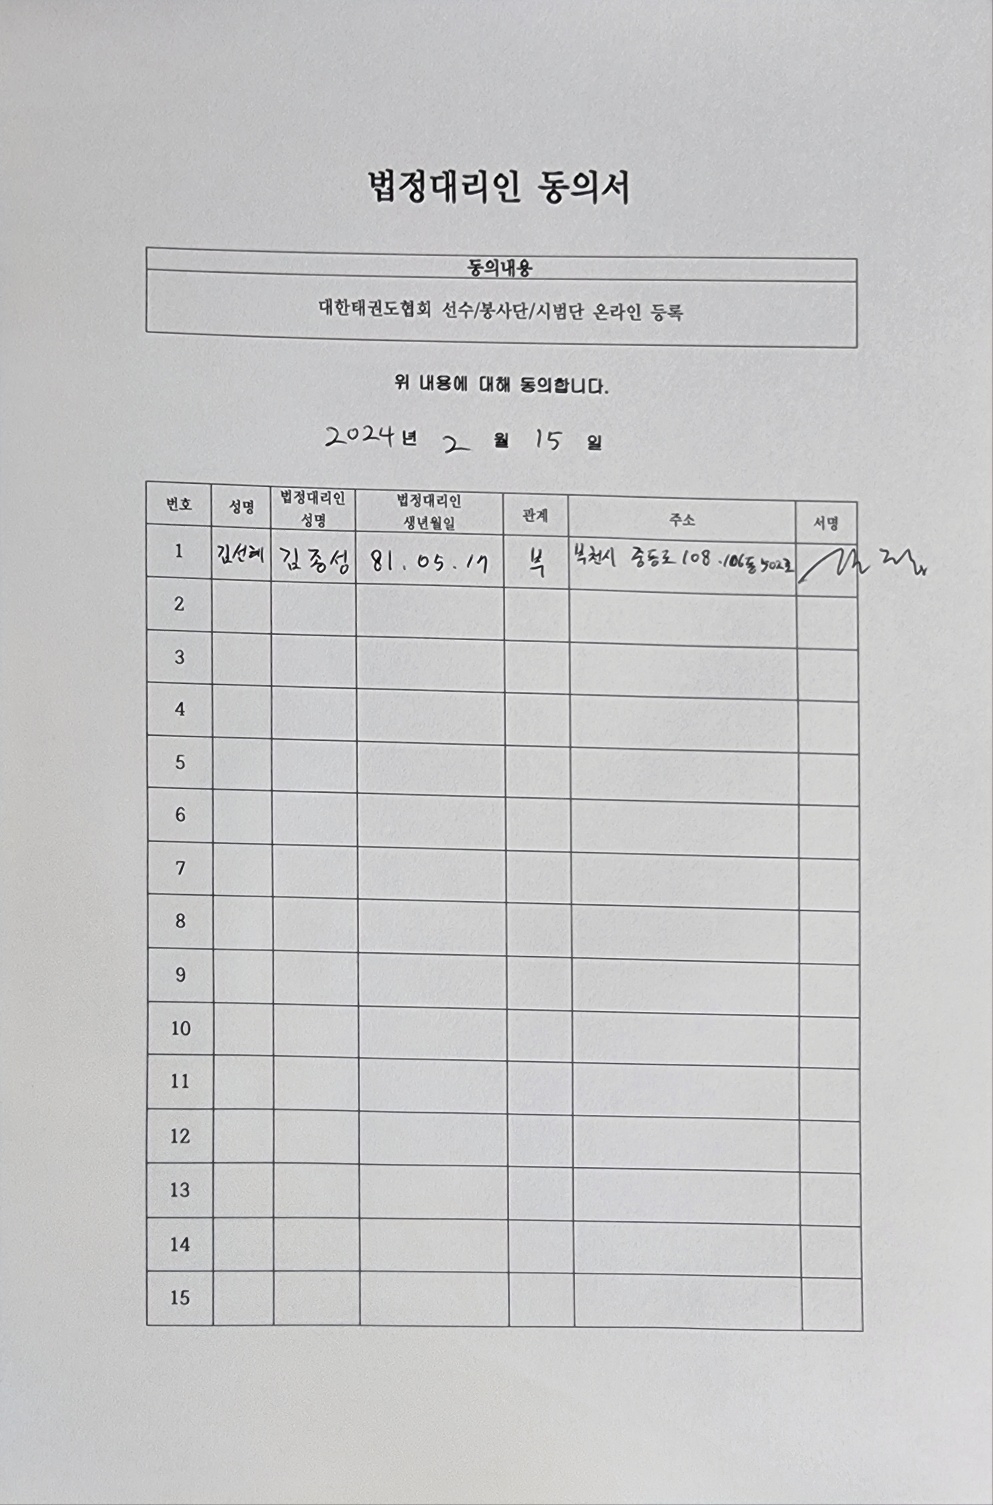 법정대리인 동의서
동의내용
대한태권도협회 선수/봉사단/시범단 온라인 등록
위 내용에 대해 동의합니다.
2024년 2 월 15 일
번호 성명 법정대리인 성명 법정대리인 생년월일 관계 주소 서명
1 김선혜 김종성 81.05.17 부 부천시 중동로 108.106동 502호
2
3
4
5
6
7
8
9
10
11
12
13
14
15